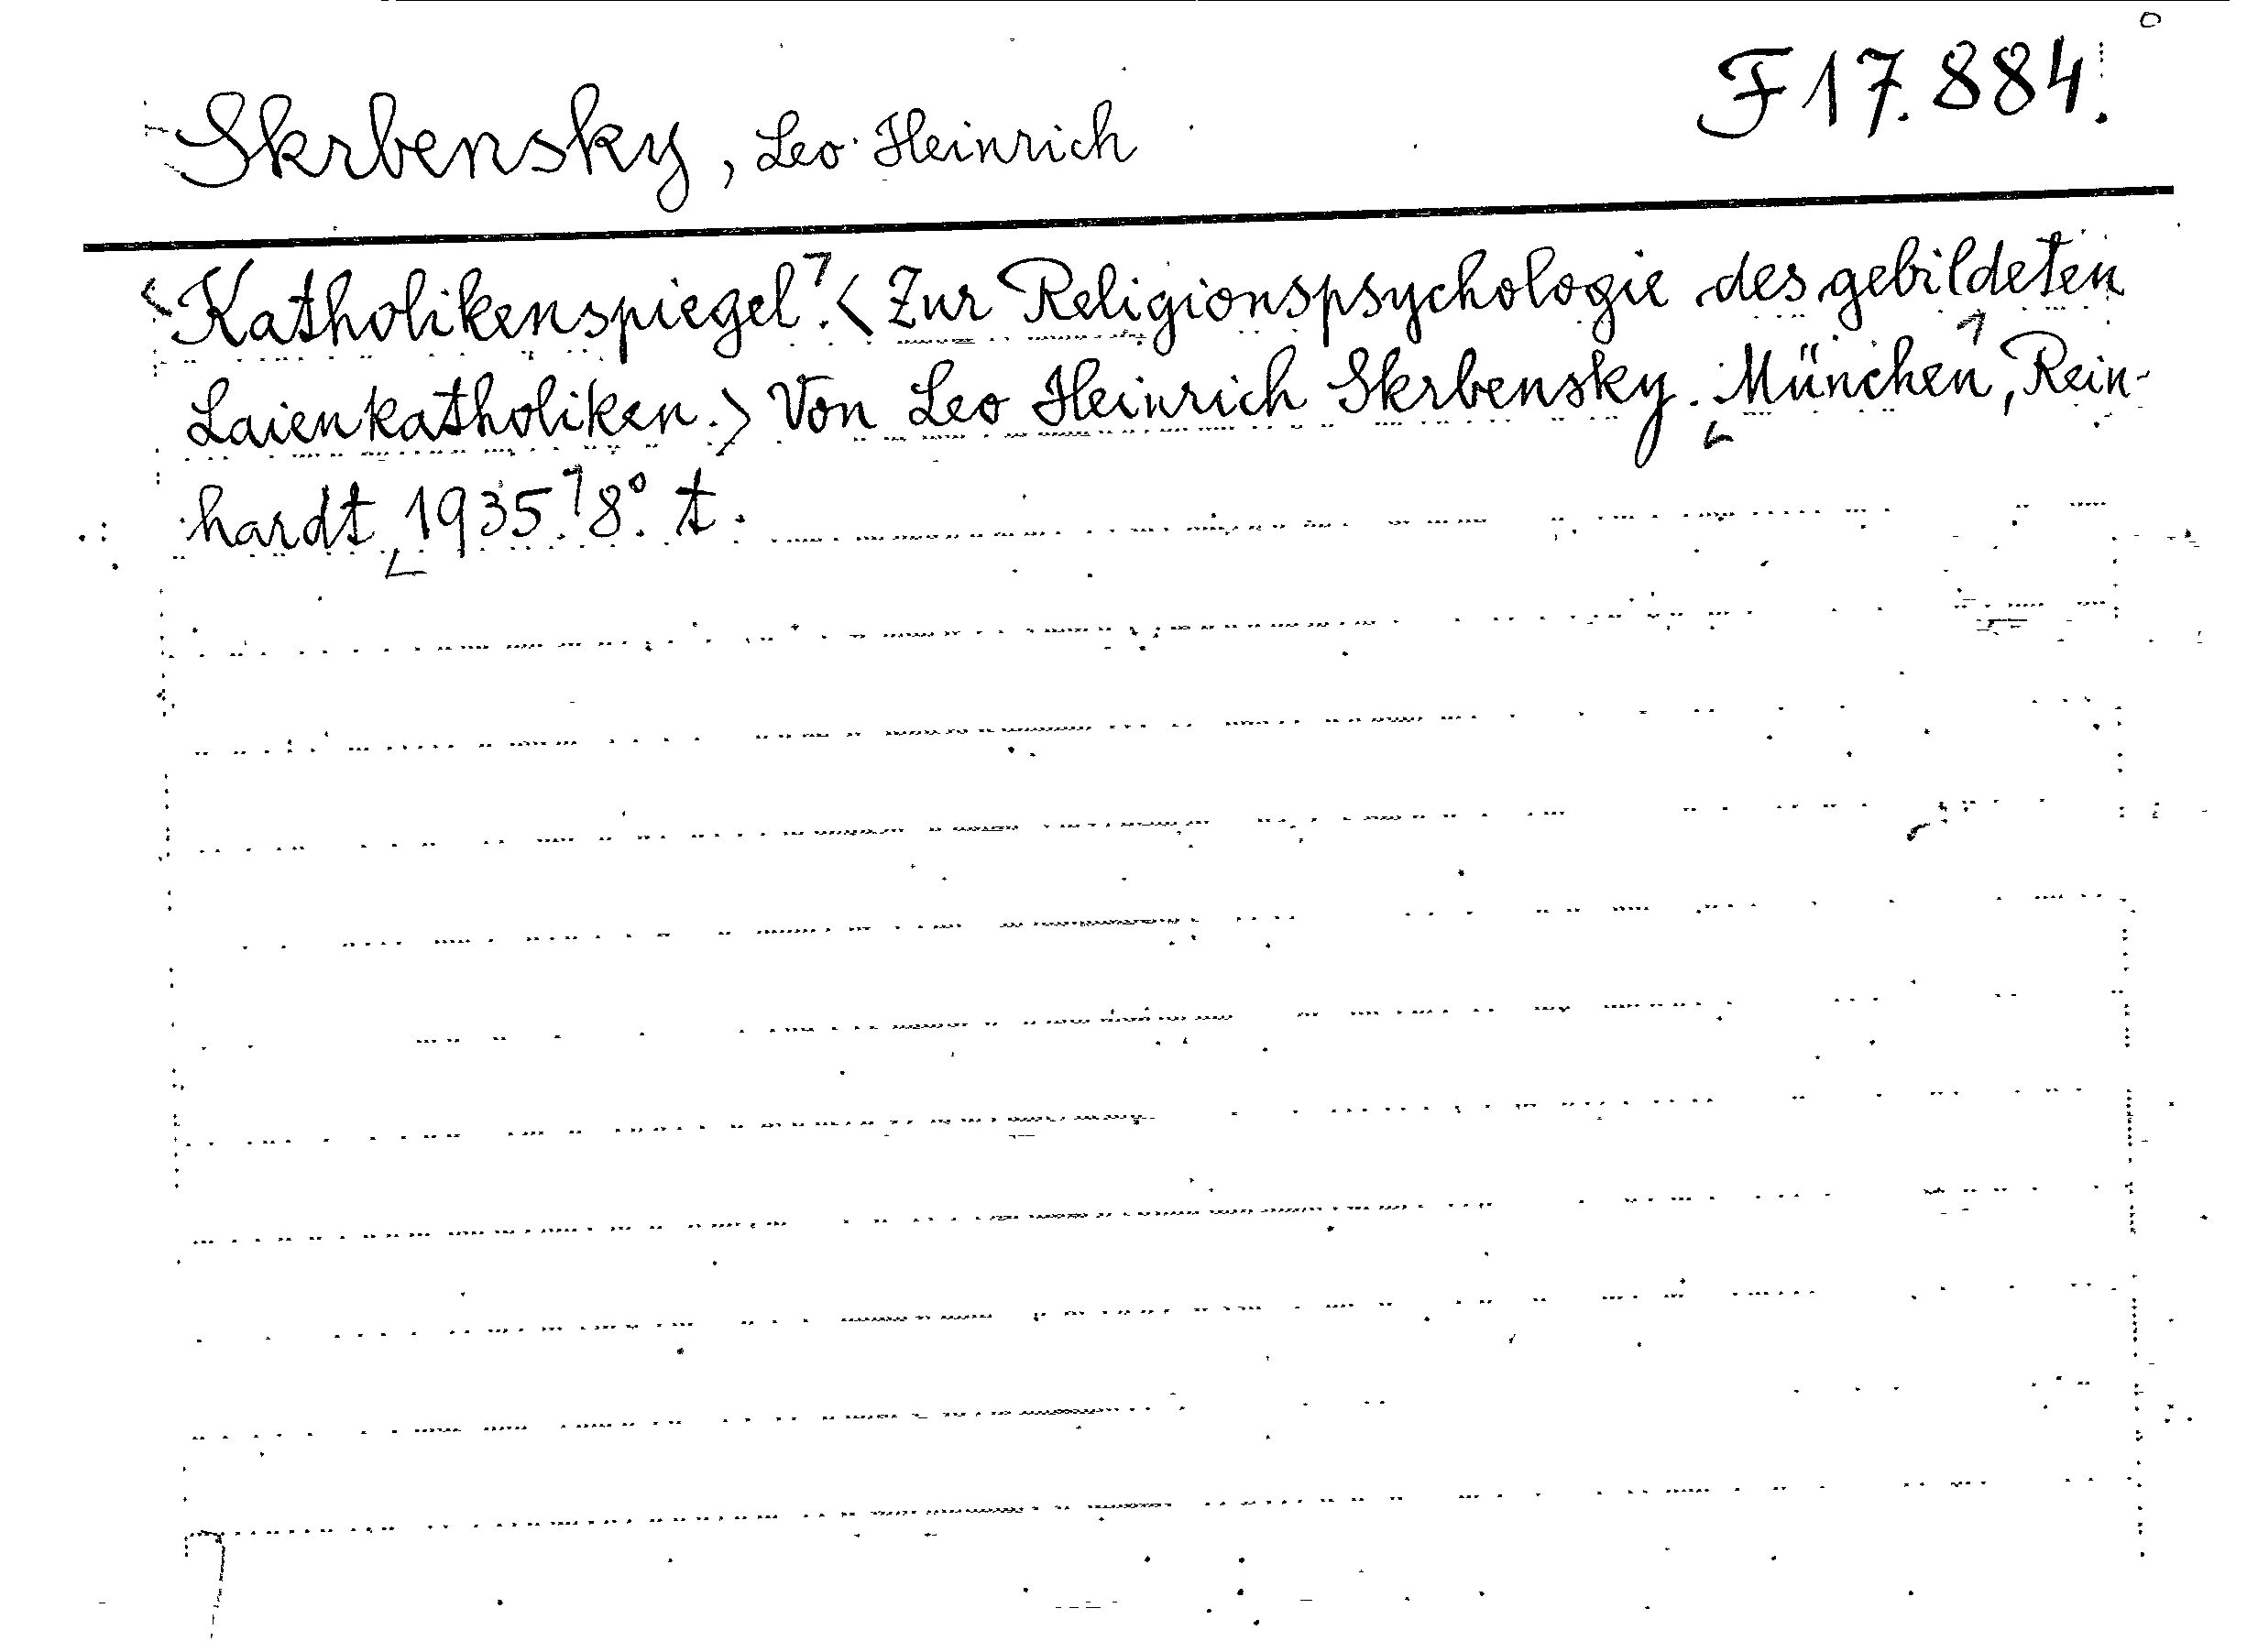 Skrbensky, Leo Heinrich
F 17.884.
Katholikenspiegel. < Zur Religionspsychologie des gebildeten
Laienkatholiken. > Von Leo Heinrich Skrbensky. München, Rein-
hardt 1935. 8°. t.